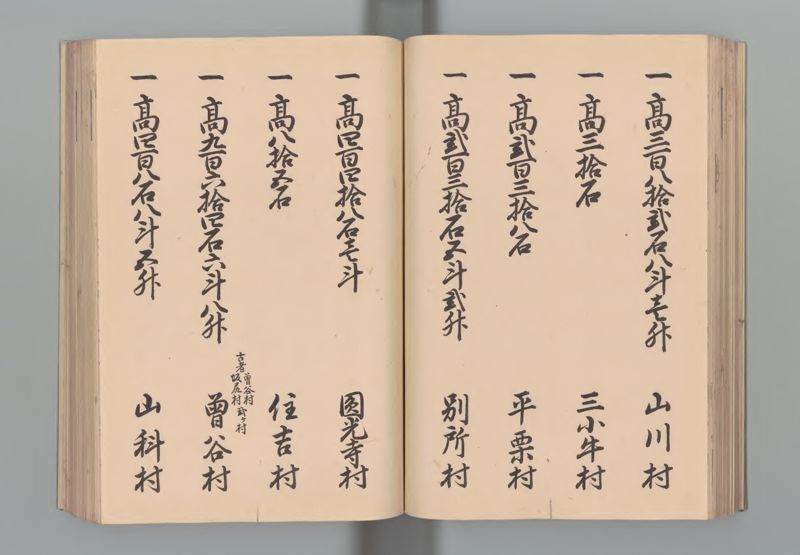 一 高三百八拾弐石八斗壱升 山川村
一 高三拾石 三小牛村
一 高弐百三拾八石 平栗村
一 高弐百三拾石五斗弐升 別所村
一 高四百四拾八石壱斗 圓光寺村
一 高八拾五石 住吉村
古者曽谷村
坂尻村弐ヶ村
一 高九百六拾四石六斗八升 曽谷村
一 高四百八石八斗五升 山科村